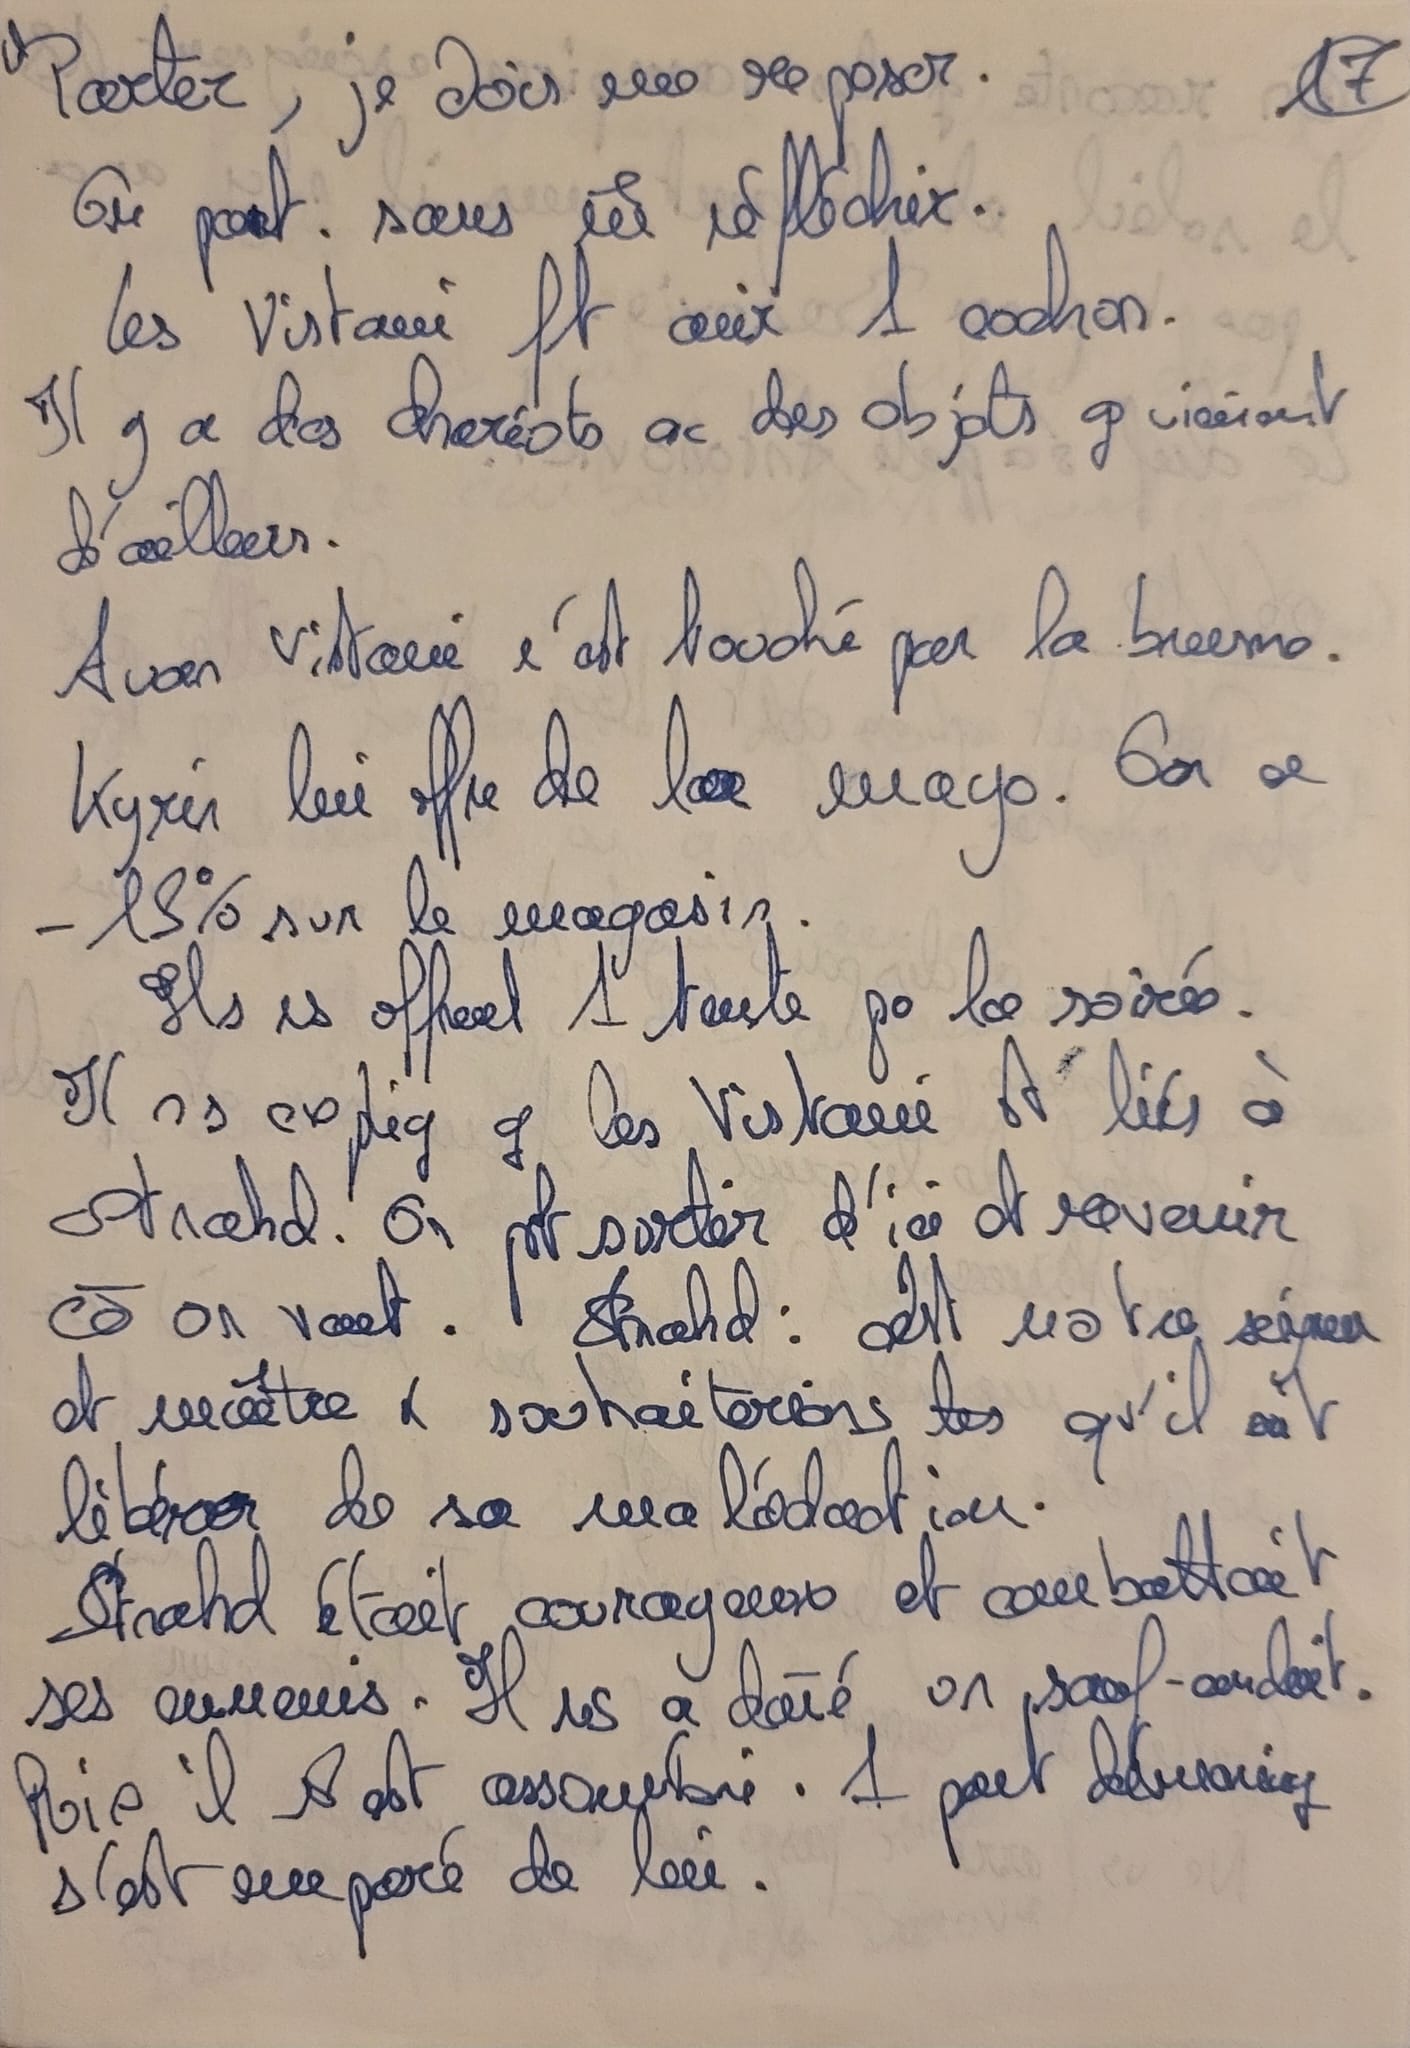 Partez, je dois me reposer. 17
On part. sans y réfléchir.
Les Vistani ft cuir 1 cochon.
Il y a des chariots ac des objets q viennent
d'ailleurs.
Avan Vistani n'est touché par la brume.
Kyrin lui offre de la mayo. On a
-15% sur le magasin.
Ils ns offrent 1 tente po la soirée.
Il ns expliq q les Vistani st liés à
Strahd. On pt sortir d'ici et revenir
cō on veut. Strahd: c'est notre seigneur
et maître & souhaiterions ts qu'il soit
libérer de sa malédiction.
Strahd était courageux et combattait
ses ennemis. Il ns a donné un sauf-conduit.
Puis il s'est assombri. 1 part démoniaq
s'est emparé de lui.